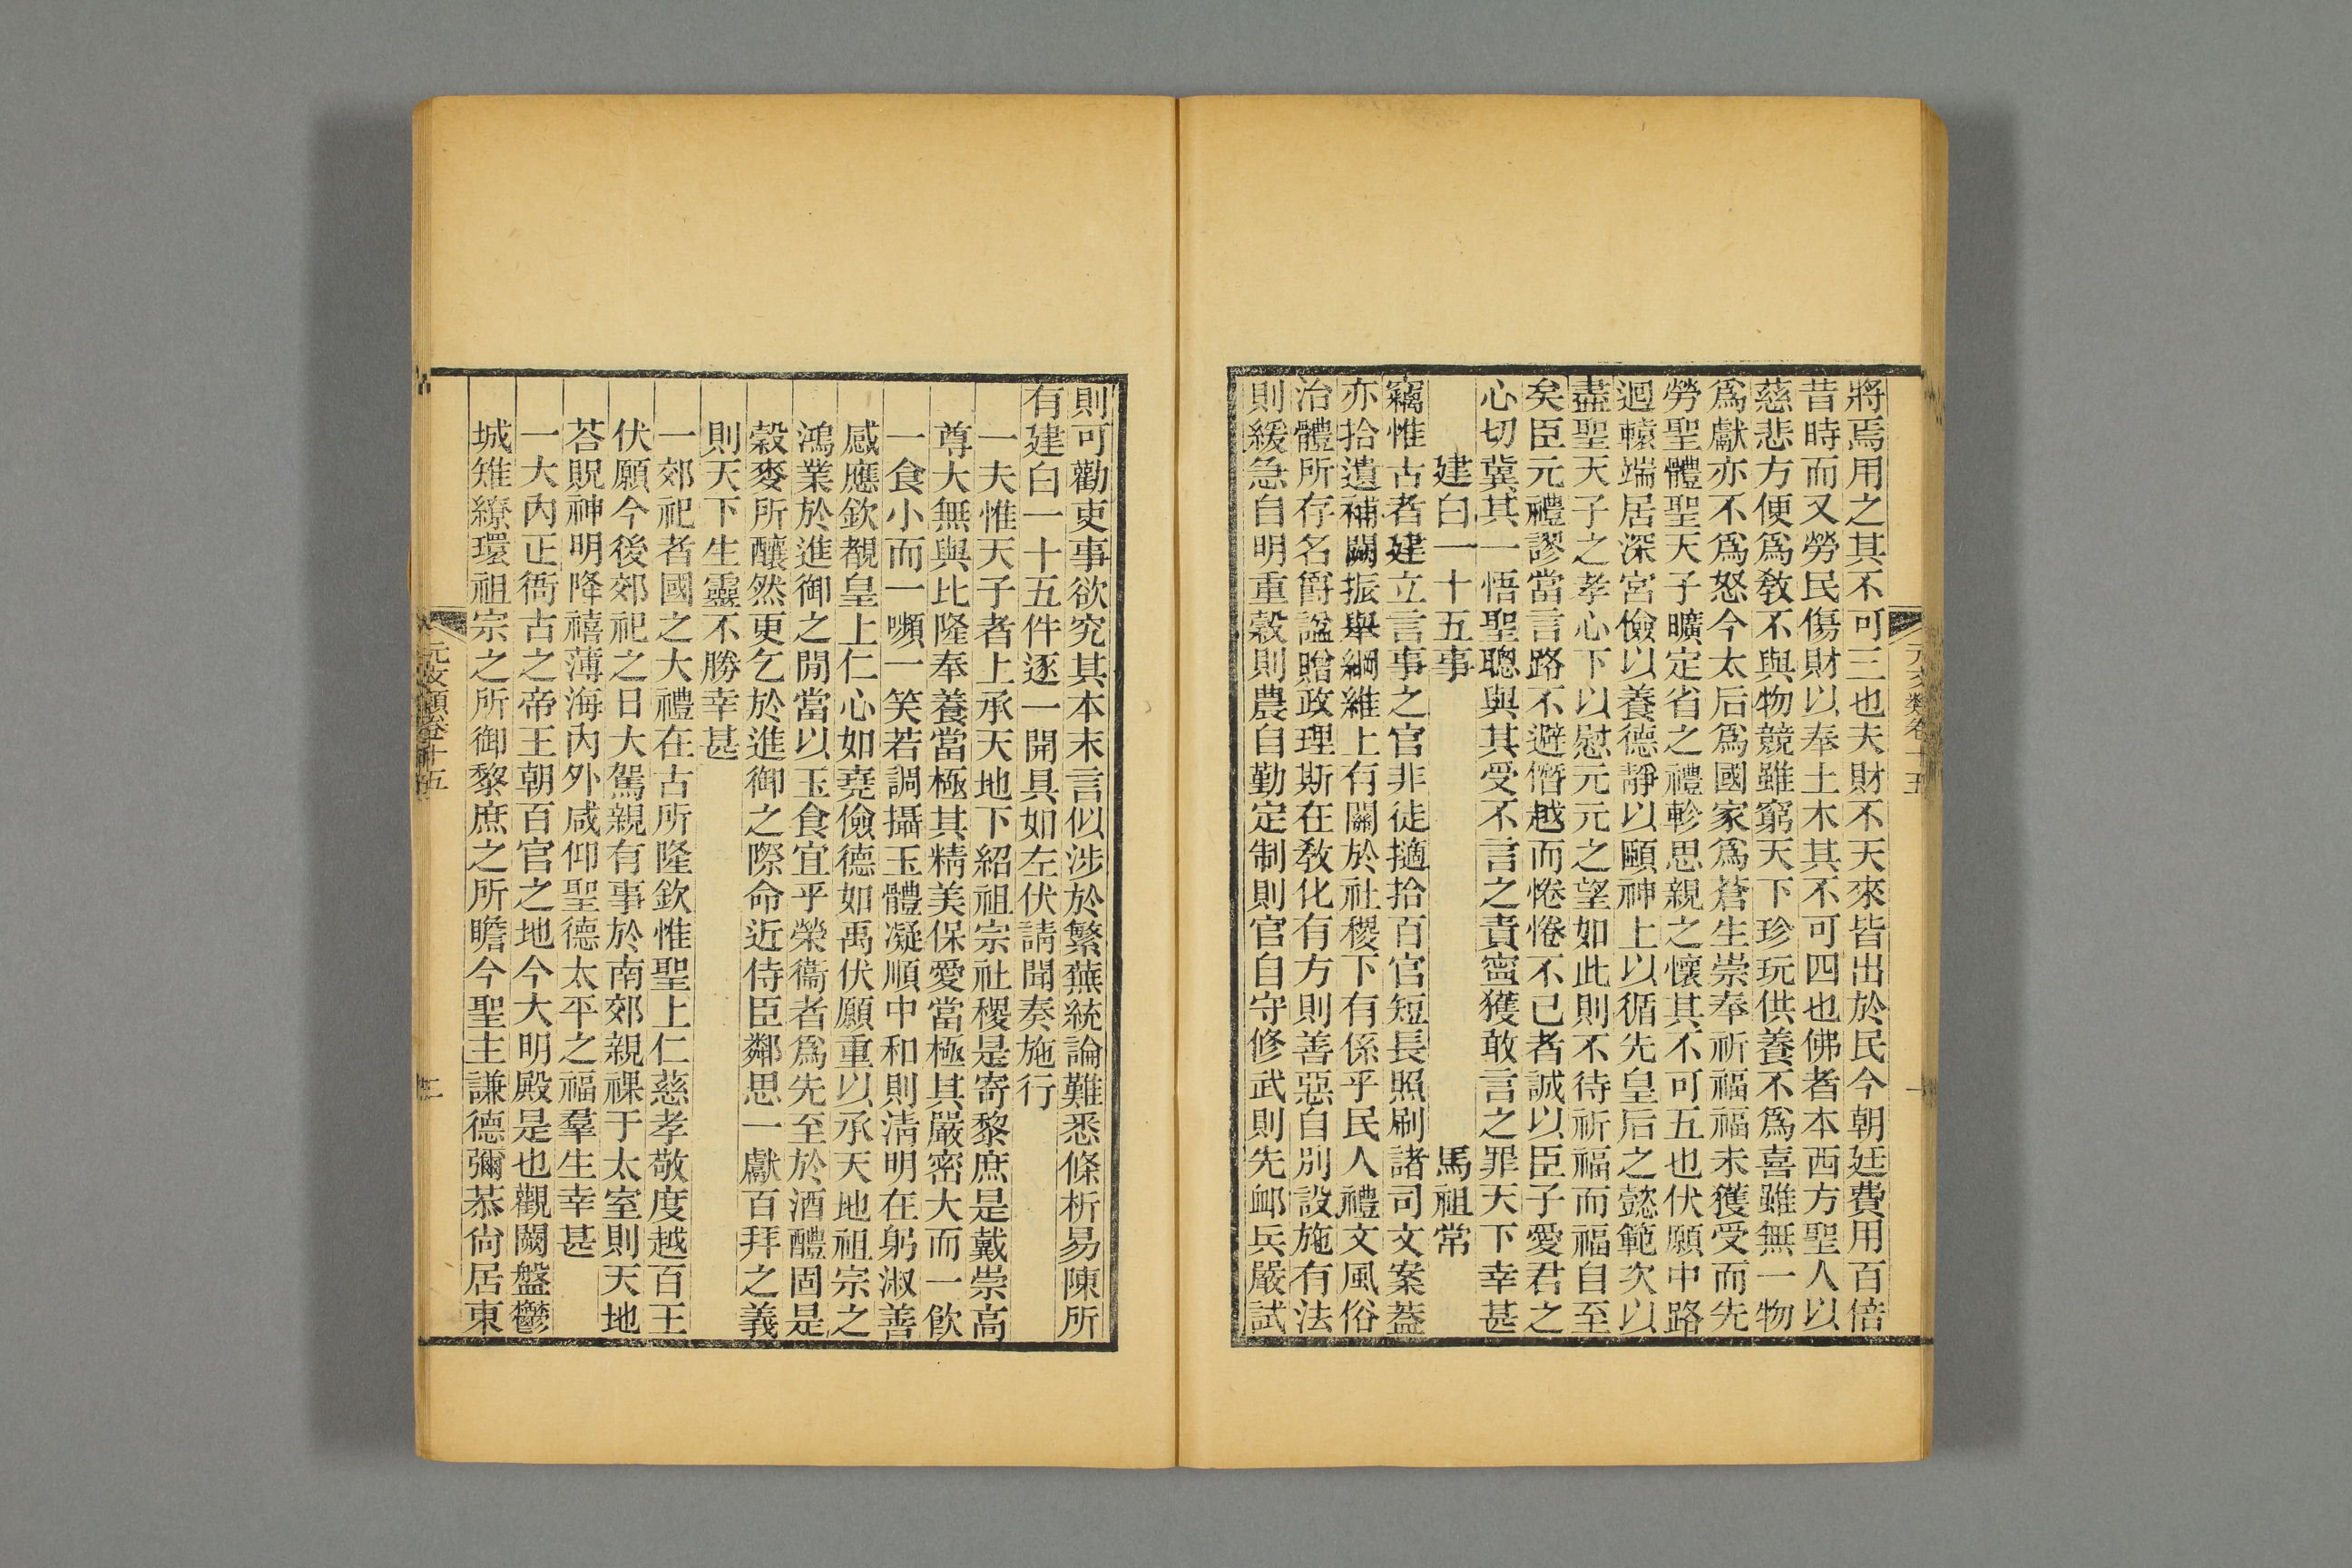 將焉用之其不可三也夫財不天來皆出於民今朝廷費用百倍
昔時而又勞民傷財以奉土木其不可四也佛者本西方聖人以
慈悲方便爲敎不與物競雖窮天下珍玩供養不爲喜雖無一物
爲獻亦不爲怒今太后爲國家爲蒼生崇奉祈福福未獲受而先
勞聖體聖天子曠定省之禮軫思親之懷其不可五也伏願中路
迴轅端居深宮儉以養德靜以頤神上以循先皇后之懿範次以
盡聖天子之孝心下以慰元元之望如此則不待祈福而福自至
矣臣元禮謬當言路不避僭越而惓惓不已者誠以臣子愛君之
心切冀其一悟聖聰與其受不言之責寍獲敢言之罪天下幸甚
建白一十五事 馬祖常
竊惟古者建立言事之官非徒擿拾百官短長照刷諸司文案葢
亦拾遺補闕振舉綱維上有關於社稷下有係乎民人禮文風俗
治體所存名爵諡贈政理斯在敎化有方則善惡自別設施有法
則緩急自明重穀則農自勤定制則官自守修武則先卹兵嚴試
則可勸吏事欲究其本末言似涉於繁蕪統論難悉條析易陳所
有建白一十五件逐一開具如左伏請聞奏施行
一夫惟天子者上承天地下紹祖宗社稷是寄黎庶是戴崇高
尊大無與比隆奉養當極其精美保愛當極其嚴密大而一飮
一食小而一嚬一笑若調攝玉體凝順中和則淸明在躬淑善
感應欽覩皇上仁心如堯儉德如禹伏願重以承天地祖宗之
鴻業於進御之閒當以玉食宜乎榮衞者爲先至於酒醴固是
穀麥所釀然更乞於進御之際命近侍臣鄰思一獻百拜之義
則天下生靈不勝幸甚
一郊祀者國之大禮在古所隆欽惟聖上仁慈孝敬度越百王
伏願今後郊祀之日大駕親有事於南郊親祼于太室則天地
荅貺神明降禧薄海內外咸仰聖德太平之福羣生幸甚
一大內正衙古之帝王朝百官之地今大明殿是也觀闕盤鬱
城雉繚環祖宗之所御黎庶之所瞻今聖主謙德彌恭尙居東
元文類卷十五
二